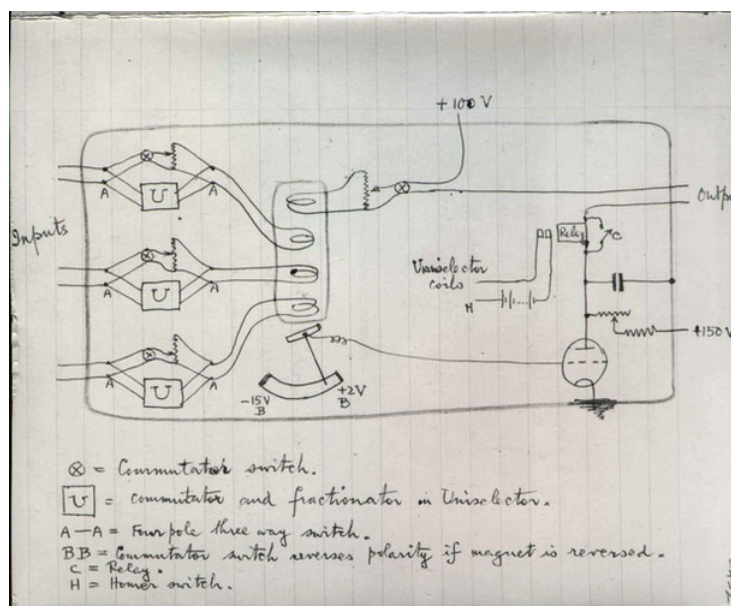 +100 V
A
A
U
Inputs
Output
Relay
C
Uniselector
coils
H
A
A
U
+150 V
A
A
U
-15V
B
+2V
B
⊗ = Commutator switch.
U = commutator and fractionator in Uniselector.
A—A = Four pole three way switch.
B.B = Commutator switch reverses polarity if magnet is reversed.
C = Relay.
H = Homer switch.